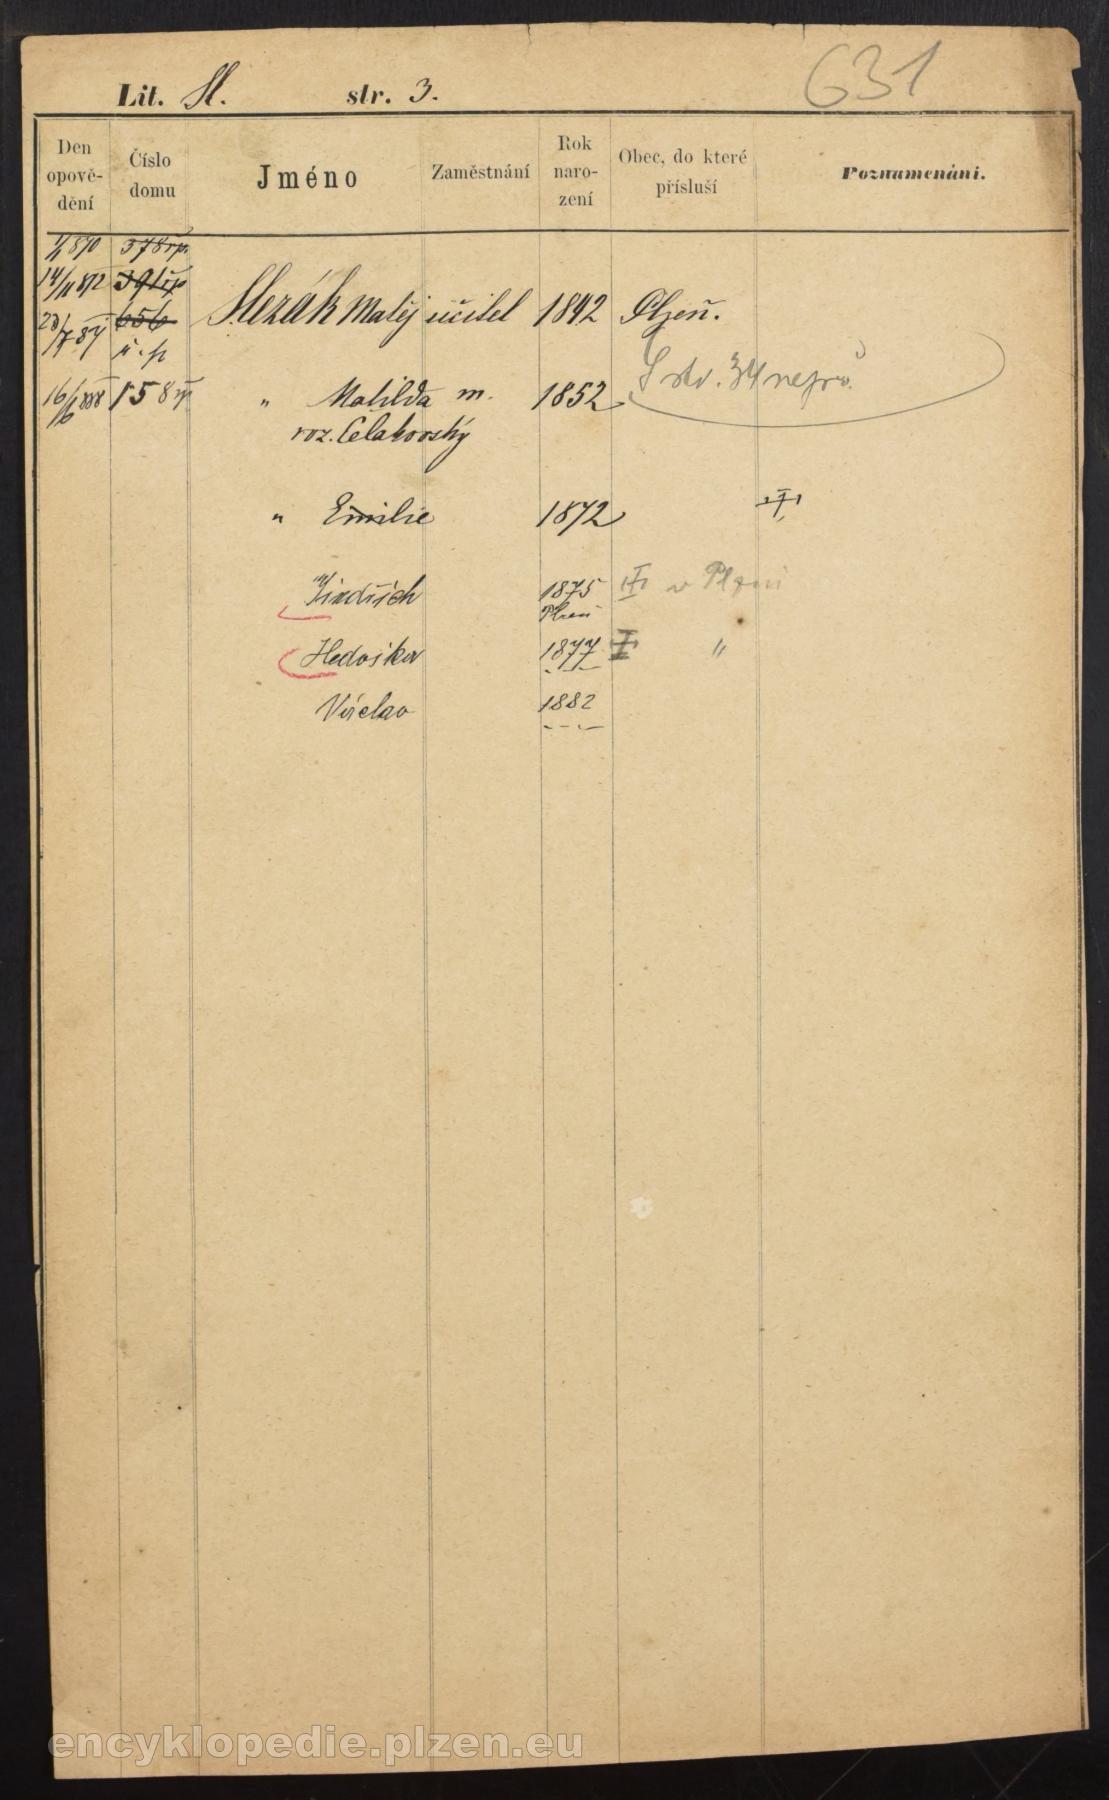 Lit. Sl. str. 3. 631
Den opově- dění
Číslo domu
Jméno
Zaměstnání
Rok naro- zení
Obec, do které přísluší
Poznamenání.
378 řp.
14/11 872 391 řp
656
Slezák Matěj učitel 1842 Plzeň.
16/6 888 158 řp " Matilda m. 1852
roz. Čelakovský
" Emilie 1872
Jindřich 1875 v Plzni
Plzeň
Hedvika 1877 "
Václav 1882
encyklopedie.plzen.eu